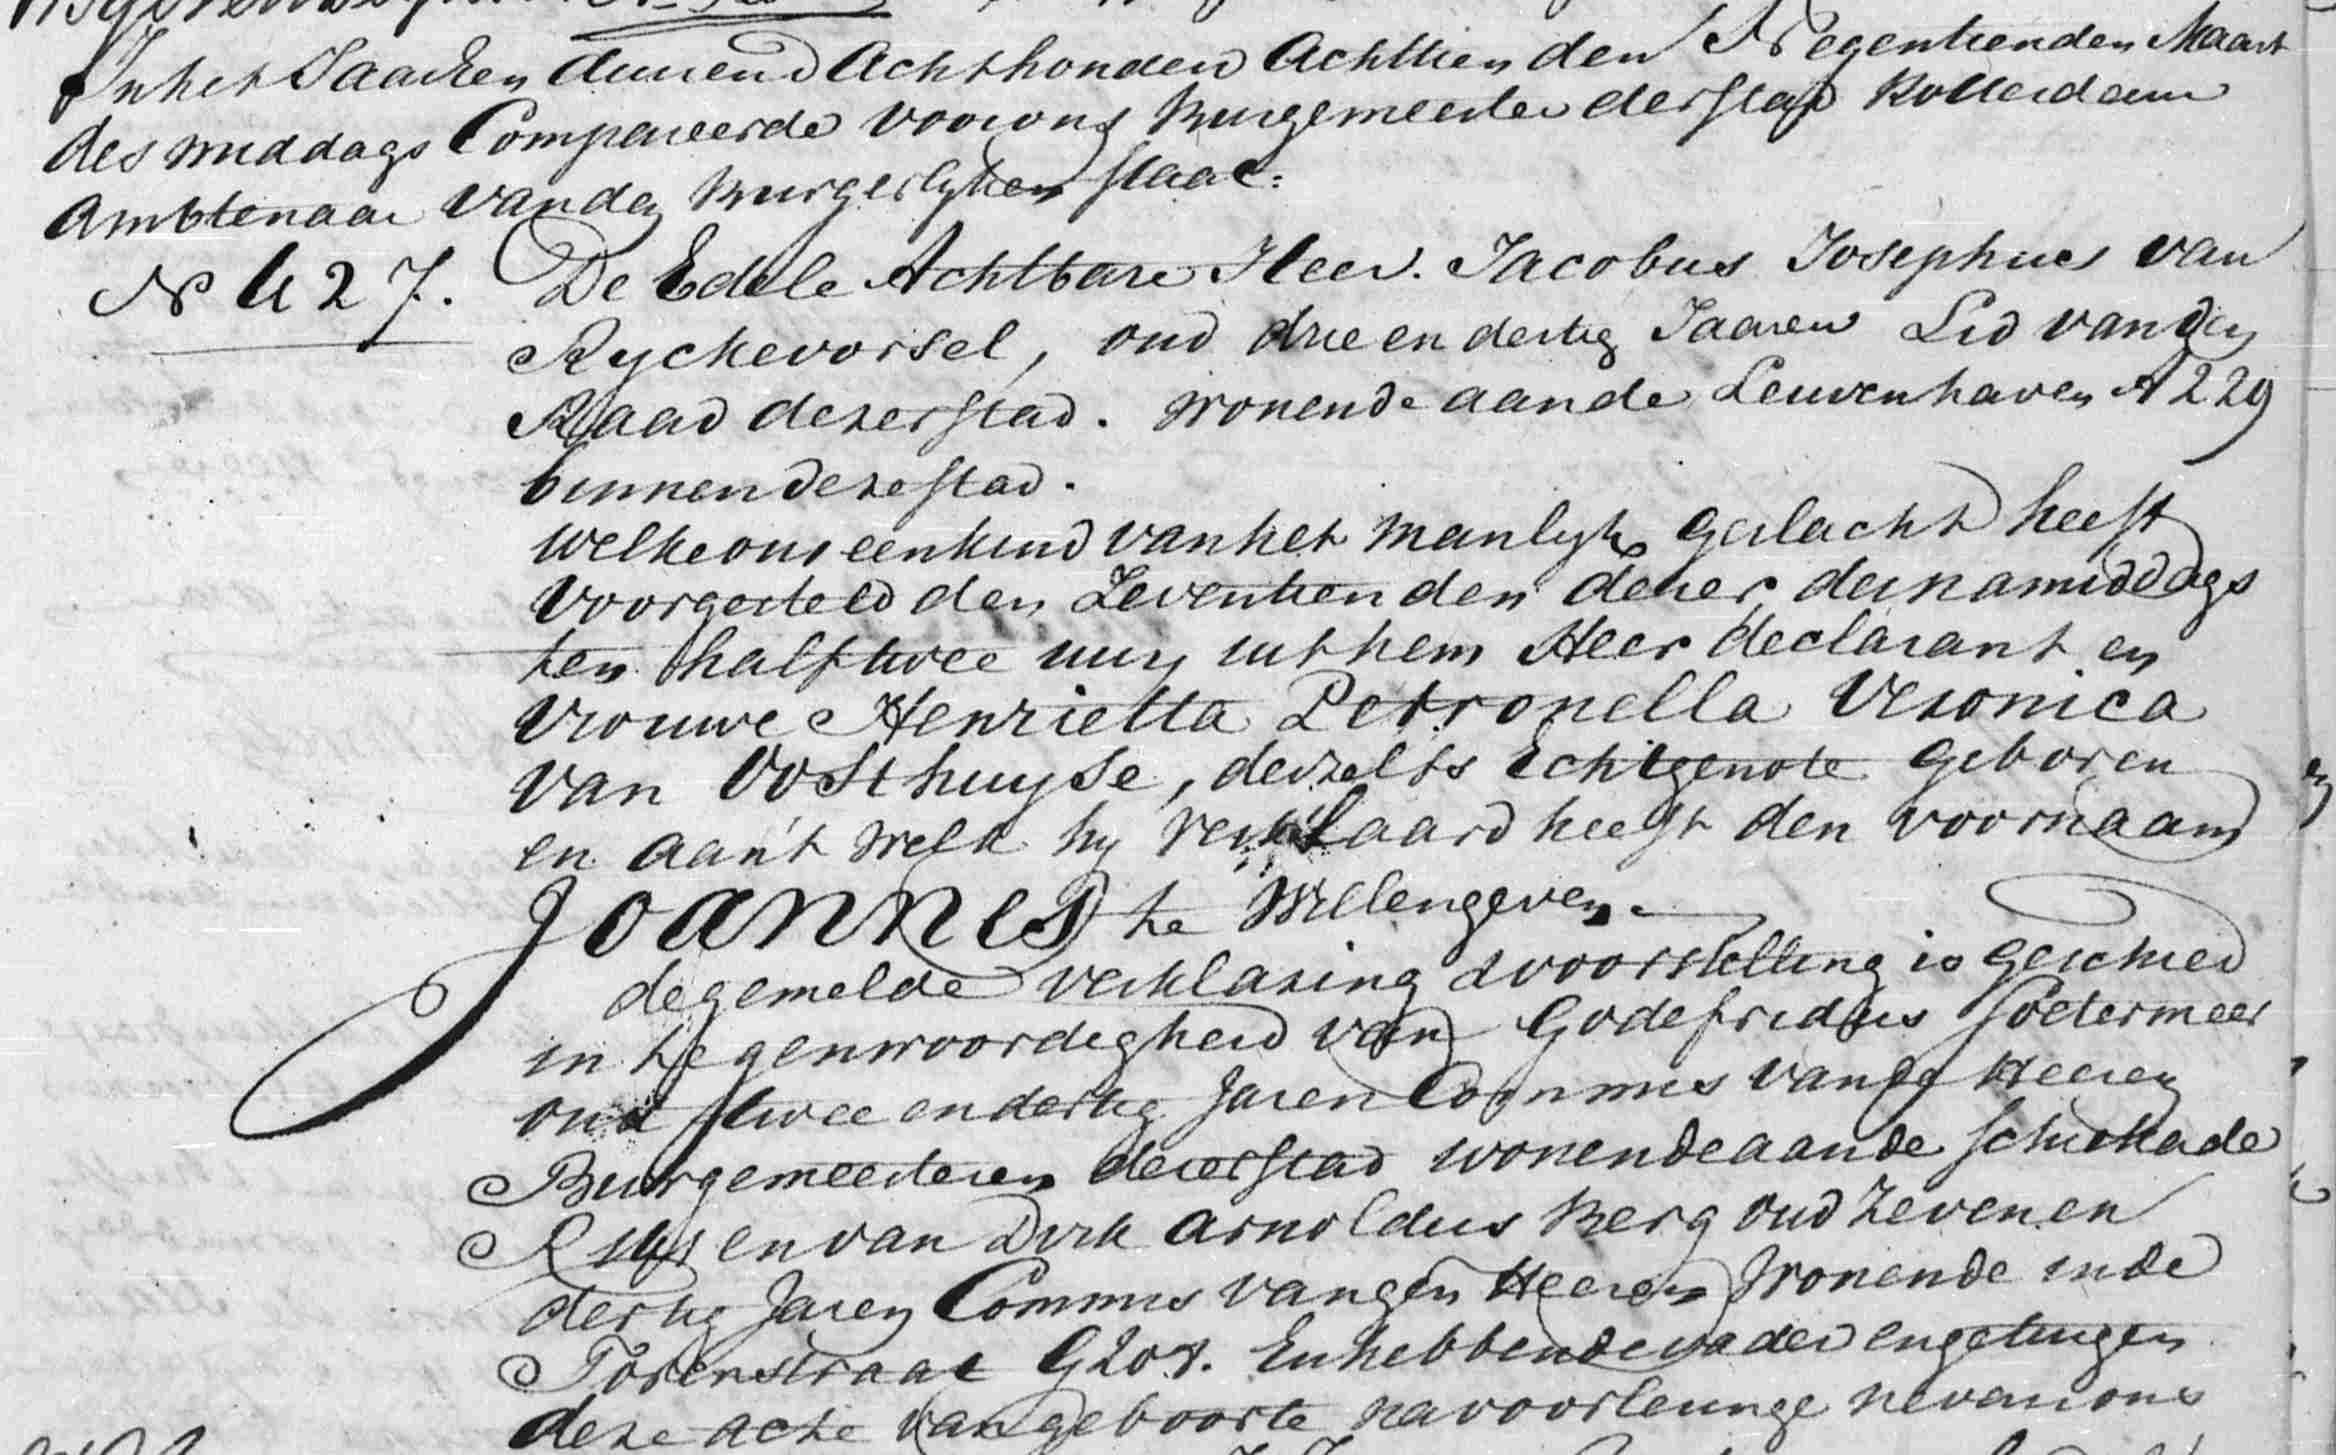 In het Jaar Een duisend Achthonderd Achttien den Negentienden Maart
des middags Compareerde voor ons Burgemeester der stad Rotterdam
Ambtenaar van den Burgerlyken staat:
No 427. De Edele Achtbare Heer. Jacobus Josephus van
Ryckevorsel, oud drie en dertig Jaaren Lid van den
Raad dezer stad. wonende aan de Leuvenhaven A 229
binnen deze stad.
welke ons een kind van het manlyk geslacht heeft
voorgesteld den Zeventienden dezer des namiddags
ten half twee uur, uit hem Heer declarant en
vrouwe Henrietta Petronella Veronica
van Oosthuyse, deszelfs Echtgenote geboren
en aan 't welk hy verklaard heeft den voornaam
Joannes te willen geven.
de gemelde verklaring & voorstelling is geschied
in tegenwoordigheid van Godefridus Soetermeer
oud twee en dertig Jaren Commies van de Heeren
Burgemeesteren dezer stad wonende aan de Schiekade
en van Dirk Arnoldus Berg oud Zeven en
dertig Jaren Commies van gem Heeren wonende in de
Torenstraat G 208. En hebben de vader en getuigen
deze acte van geboorte na voorlezinge nevens ons